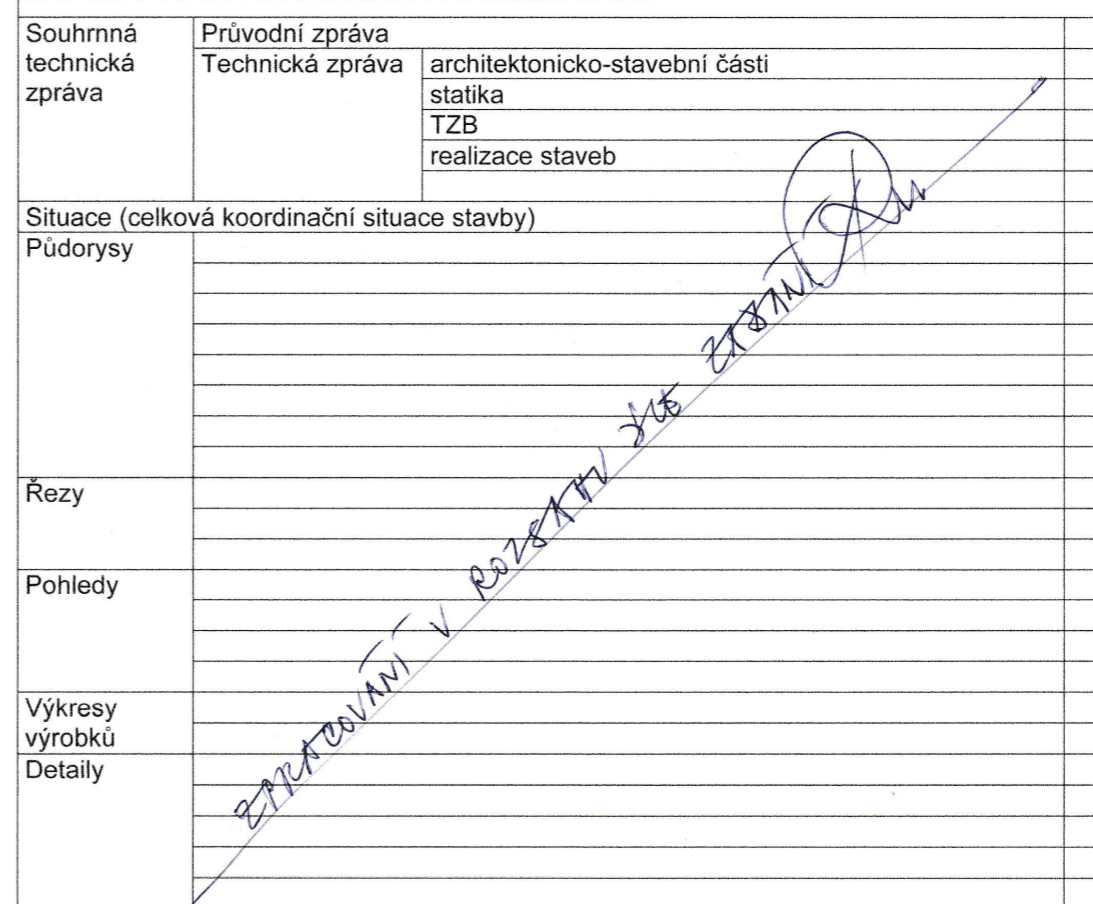 Souhrnná technická zpráva
Průvodní zpráva
Technická zpráva
architektonicko-stavební části
statika
TZB
realizace staveb
Situace (celková koordinační situace stavby)
Půdorysy
Řezy
Pohledy
Výkresy výrobků
Detaily
ZPRACOVÁNÍ V ROZSAHU DLE ZADÁNÍ